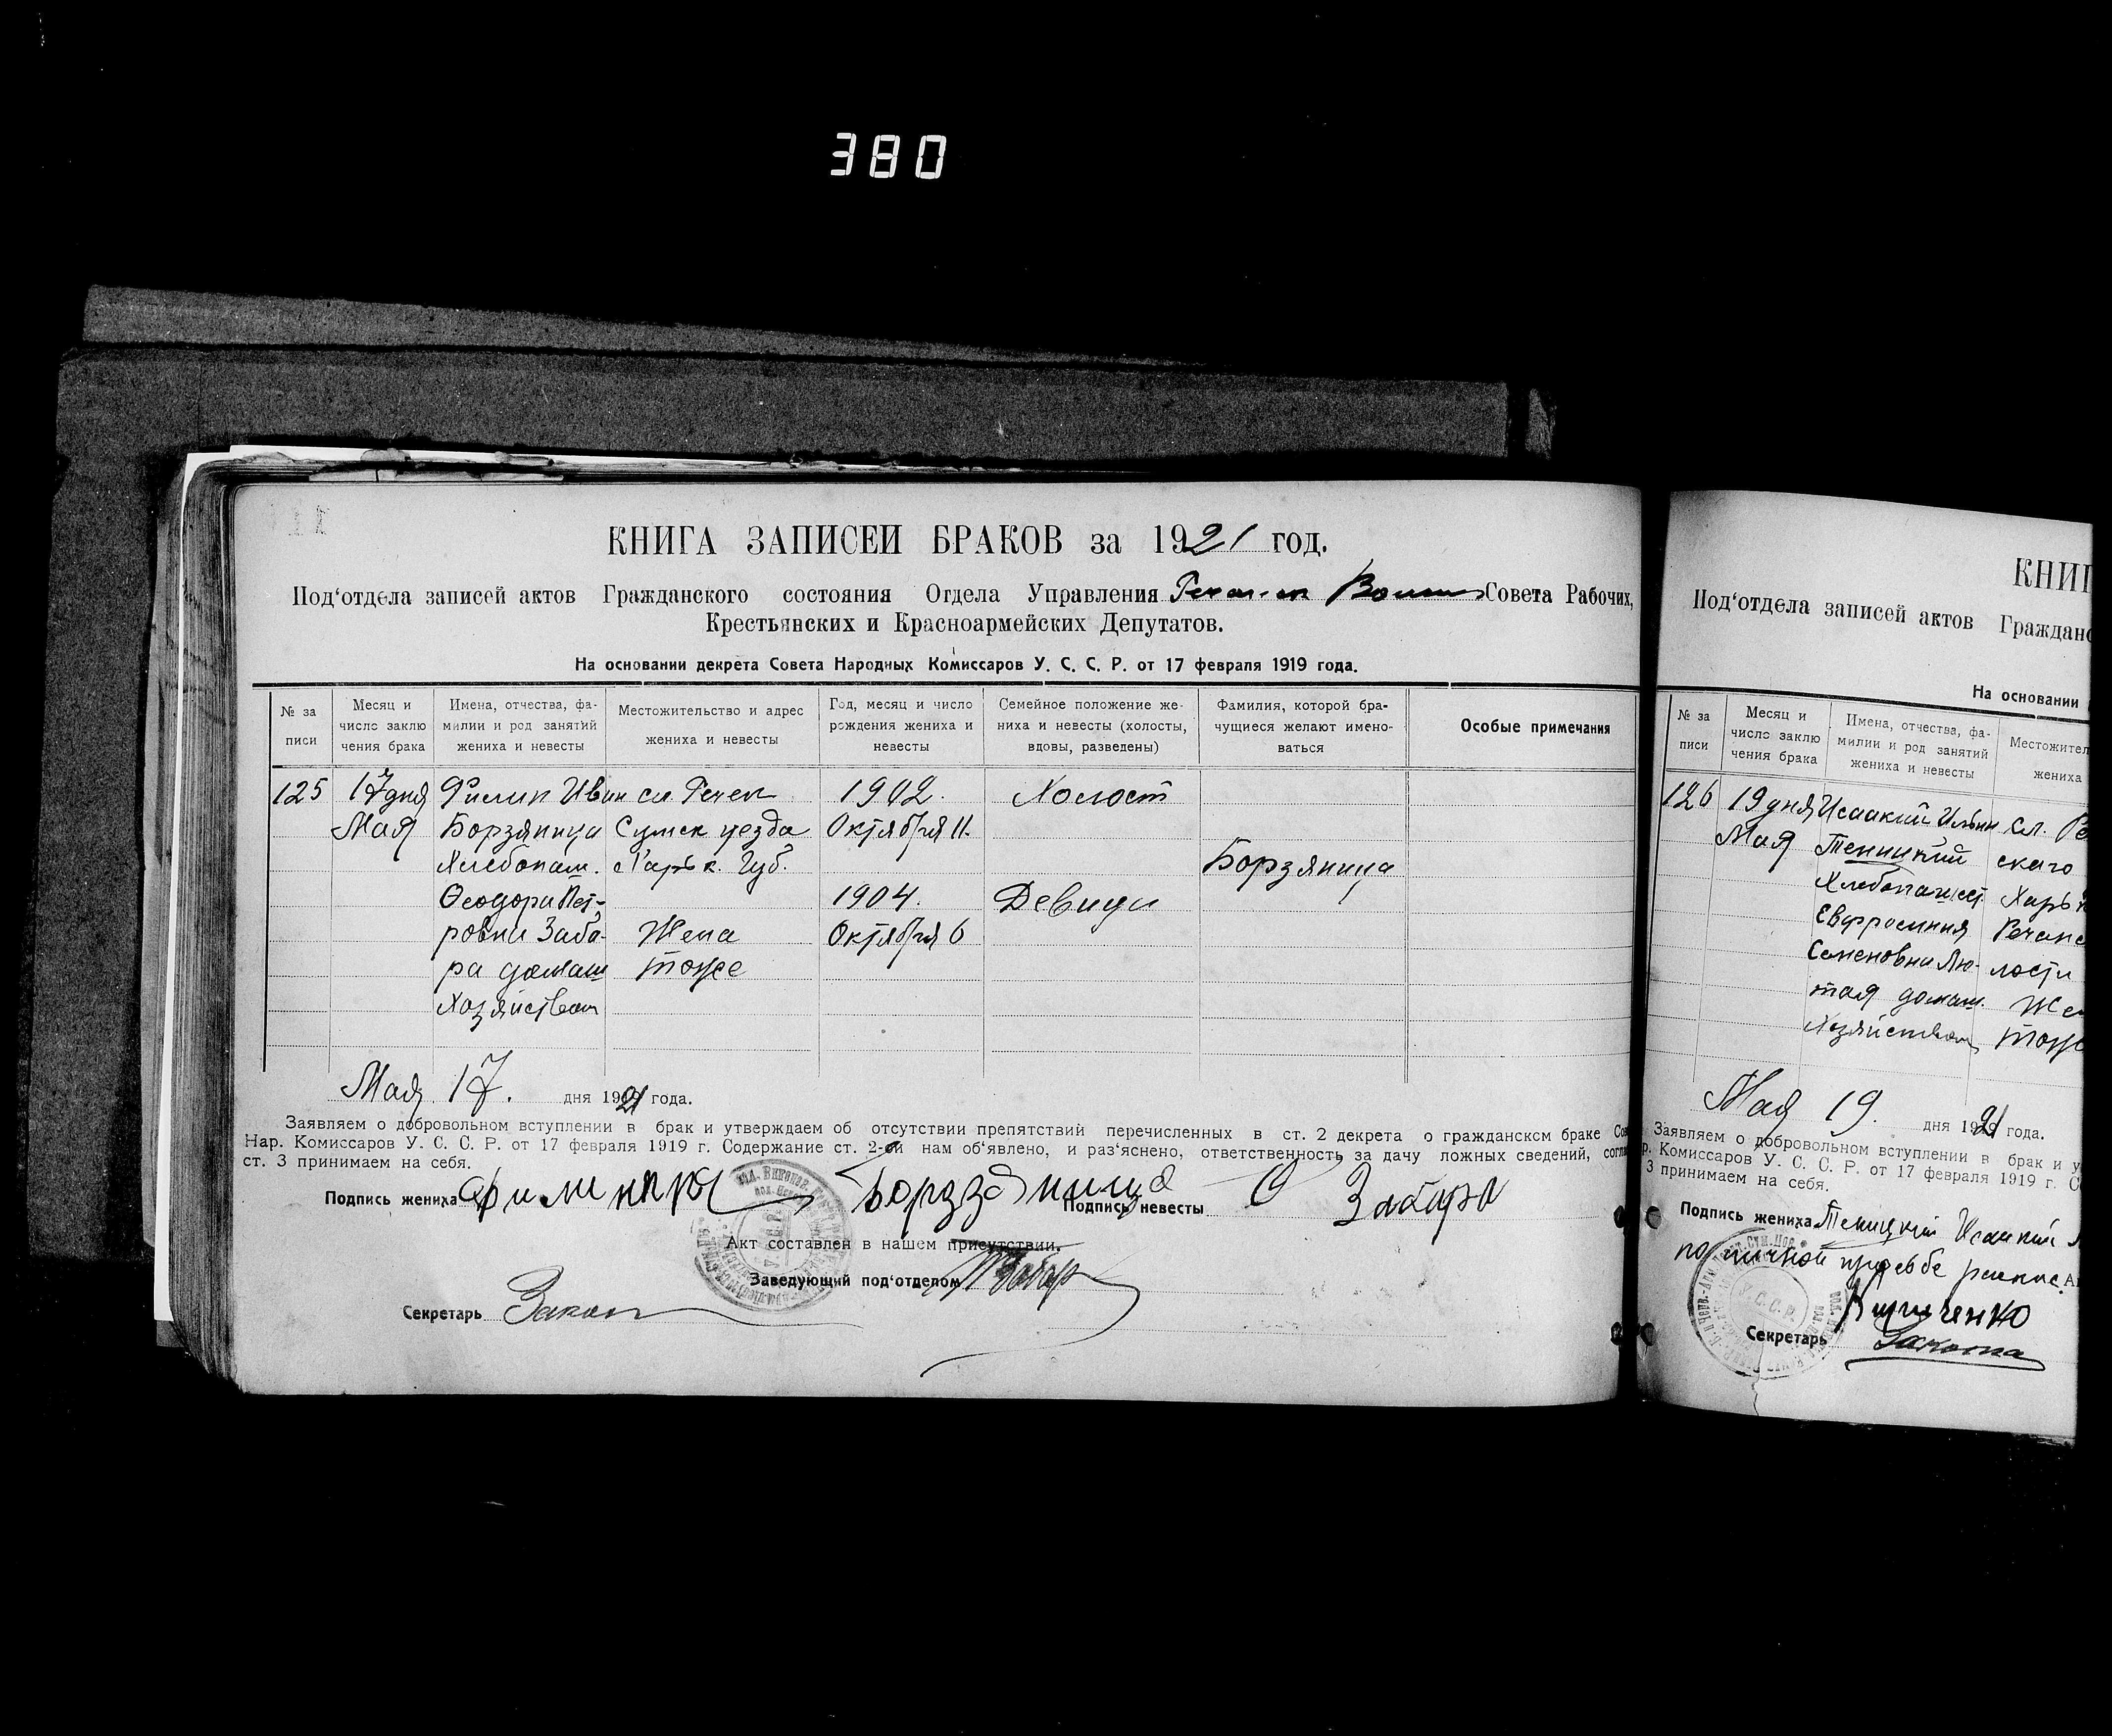 380
КНИГА ЗАПИСЕЙ БРАКОВ за 1921 год.
Под‘отдела записей актов Гражданского состояния Отдела Управления Совета Рабочих,
Крестьянских и Красноармейских Депутатов.
На основании декрета Совета Народных Комиссаров У. С. С. Р. от 17 февраля 1919 года.
№ за
писи
Месяц и
число заклю
чения брака
Имена, отчества, фа-
милии и род занятий
жениха и невесты
Местожительство и адрес
жениха и невесты
Год, месяц и число
рождения жениха и
невесты
Семейное положение же-
ниха и невесты (холосты,
вдовы, разведены)
Фамилия, которой бра-
чущиеся желают имено-
ваться
Особые примечания
125 17 дня Филип Иван сл. Речек 1902. Холост
Мая Борзяница Сумск уезда Октября 11.
Хлебопаш. Харьк. Губ. Борзяница
Феодора Пет- 1904. Девица
ровна Заба- Жена Октября 6
ра домаш тоже
Хозяйством
Мая 17. дня 1921 года.
Заявляем о добровольном вступлении в брак и утверждаем об отсутствии препятствий перечисленных в ст. 2 декрета о гражданском браке
Нар. Комиссаров У. С. С. Р. от 17 февраля 1919 г. Содержание ст. 2-ой нам об‘явлено, и раз‘яснено, ответственность за дачу ложных сведений,
ст. 3 принимаем на себя.
Подпись жениха Подпись невесты Забара
Акт составлен в нашем присутствии.
Заведующий под‘отделом Забар
Секретарь
КНИГ
Под‘отдела записей актов Гражданс
На основании
№ за
писи
Месяц и
число заклю
чения брака
Имена, отчества, фа-
милии и род занятий
жениха и невесты
Местожител
жениха
126 19 дня Исаакий Ильин сл. Ре
Мая Теницкий скаго
Хлебопашест. Харьк
Евфросиния Речанс
Семеновна Лю- лости
тая домаш. Же
Хозяйством тоже
Мая 19. дня 1921 года.
Заявляем о добровольном вступлении в брак и у
р. Комиссаров У. С. С. Р. от 17 февраля 1919 г.
3 принимаем на себя.
Подпись жениха Теницкий Исаакий
по личной просьбе
Секретарь